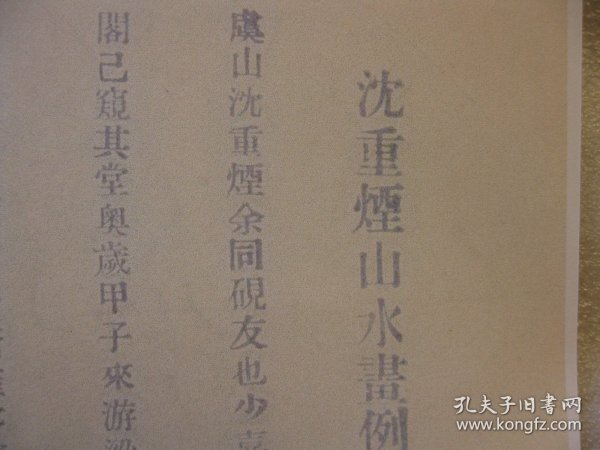 沈重煙山水畫例
虞山沈重煙余同硯友也少
閣已窺其堂奧歲甲子來游
孔夫子旧书网
www.kongfz.com